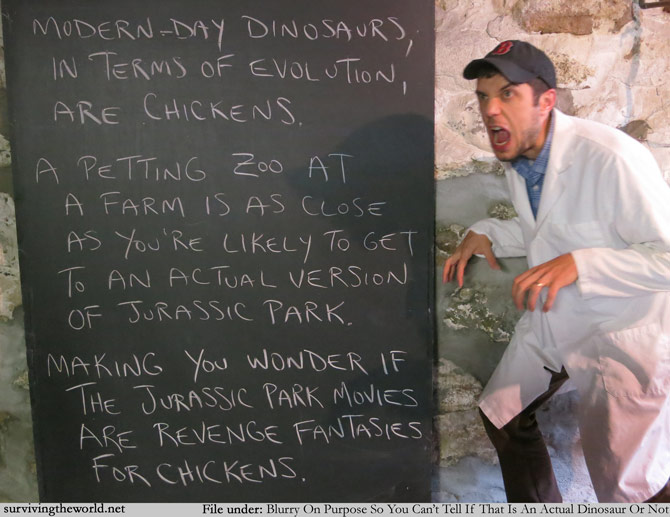 MODERN-DAY DINOSAURS,
IN TERMS OF EVOLUTION,
ARE CHICKENS.
A PETTING ZOO AT
A FARM IS AS CLOSE
AS YOU'RE LIKELY TO GET
TO AN ACTUAL VERSION
OF JURASSIC PARK.
MAKING YOU WONDER IF
THE JURASSIC PARK MOVIES
ARE REVENGE FANTASIES
FOR CHICKENS.
survivingtheworld.net File under: Blurry On Purpose So You Can't Tell If That Is An Actual Dinosaur Or Not